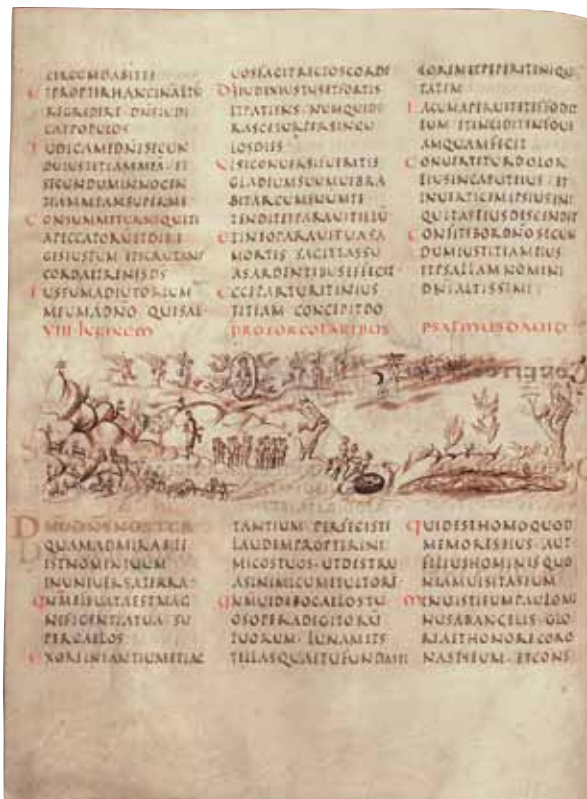 CIRCUMDABITTE
ETPROPTERHANCINALTŪ
REGREDERE DNSIUDI
CATPOPULOS
IUDICAMEDNESECUN
DUIUSTITIAMMEA ET
SECUNDUMINNOCEN
TIAMMEAMSUPERME
CONSUMMETURNEQUITI
APECCATORUETDIRI
GESIUSTUM ETSCRUTANS
CORDAETRENESDS
IUSTUMADIUTORIUM
MEUMADNO QUISAL
UOSFACITRECTOSCORDE
DSIUDEXIUSTUSETFORTIS
ETPATIENS NUMQUIDI
RASCETURPERSINGU
LOSDIES
NISICONUERSIFUERITIS
GLADIUMSUUMUIBRA
BITARCUMSUUMTE
TENDITETPARAUITILLU
ETINEOPARAUITUASA
MORTIS SAGITTASSU
ASARDENTIBUSEFFECIT
ECCEPARTURITINIUS
TITIAM CONCEPITDO
LOREMETPEPERITINIQUI
TATEM
LACUMAPERUITETEFFODIT
EUM ETINCIDITINFOUE
AMQUAMFECIT
CONUERTETURDOLOR
EIUSINCAPUTEIUS ET
INUERTICEMIPSIUSINI
QUITASEIUSDESCENDIT
CONFITEBORDNOSECUN
DUMIUSTITIAMEIUS
ETPSALLAMNOMINI
DNIALTISSIMI
VIII INFINEM PROTORCOLARIBUS PSALMUSDAUID
DNEDNSNOSTER
QUAMADMIRABILE
ESTNOMENTUUM
INUNIUERSATERRA
QNMELEUATAESTMAG
NIFICENTIATUA SU
PERCAELOS
EXOREINFANTIUMETLAC
TANTIUM PERFECISTI
LAUDEMPROPTERINI
MICOSTUOS UTDESTRU
ASINIMICUMETULTORE
QNMUIDEBOCAELOSTU
OSOPERADIGITORU
TUORUM LUNAMETS
TELLASQUAETUFUNDASTI
QUIDESTHOMOQUOD
MEMORESEIUS AUT
FILIUSHOMINISQUO
NIAMUISITASEUM
MINUISTIEUMPAULOMI
NUSABANGELIS GLO
RIAETHONORECORO
NASTIEUM ETCONS